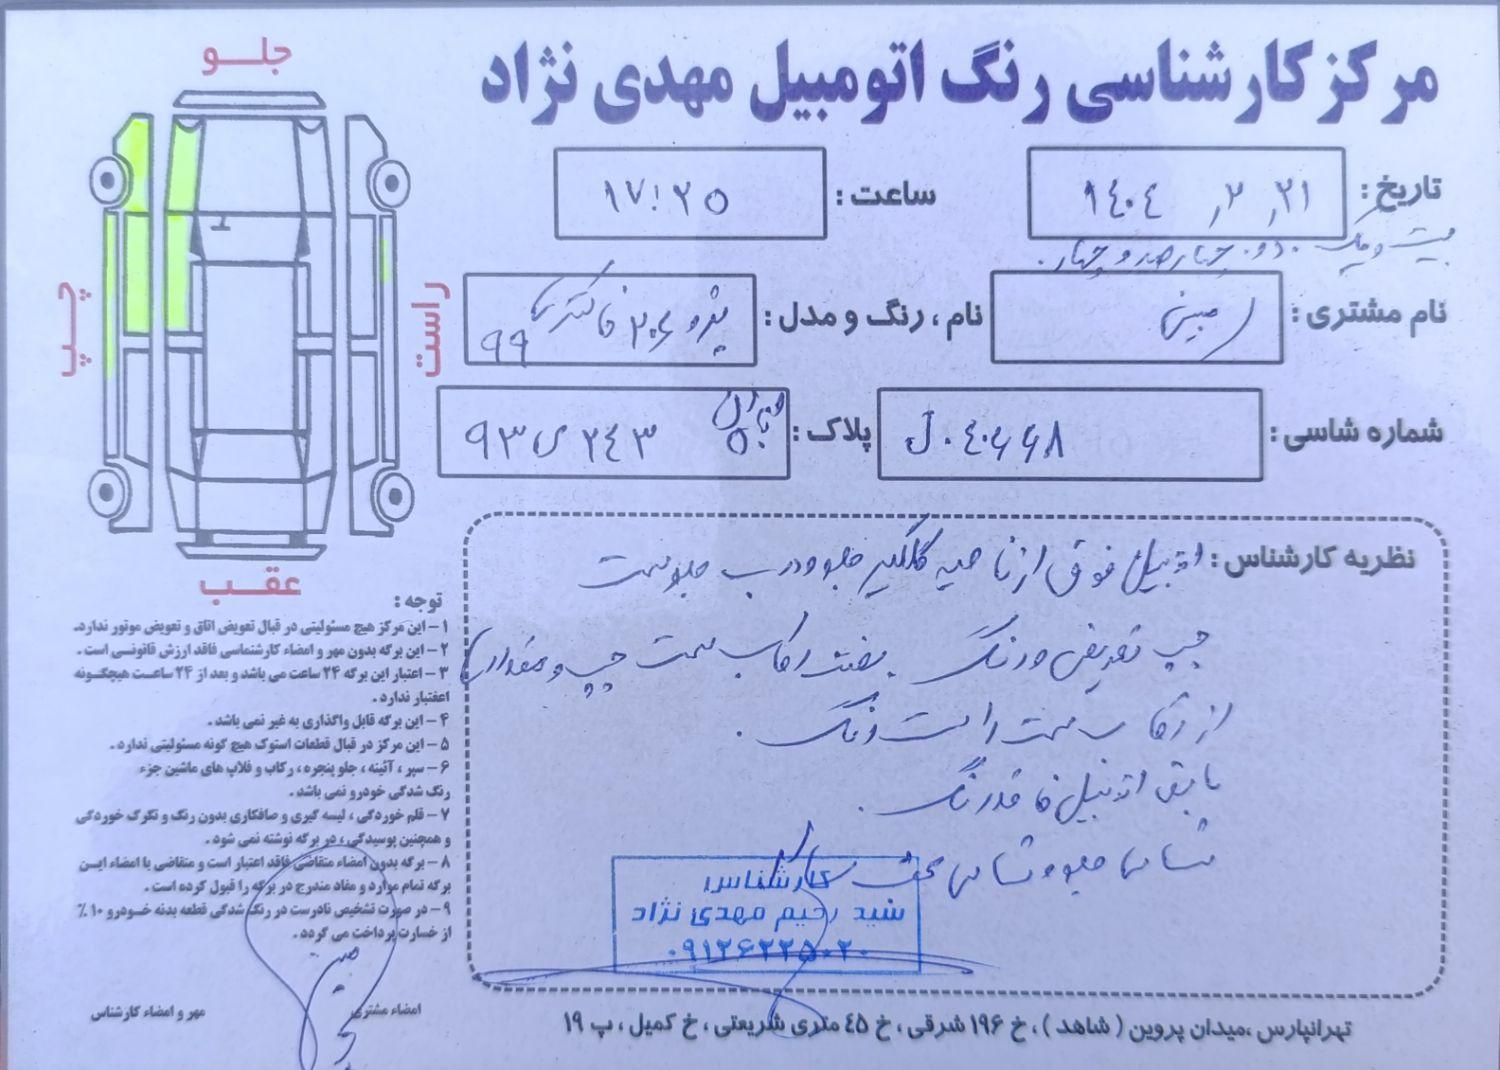 مرکز کارشناسی رنگ اتومبیل مهدی نژاد
تاریخ : ۲۱ , ۲ , ۱۴۰۴
ساعت : ۱۷:۲۵
بیست و یک . دو . چهارصد و چهار .
نام مشتری :
نام ، رنگ و مدل : پژو ۲۰۶ خاکستری ۹۹
شماره شاسی : J۰۴۰۶۶۸
پلاک : ۹۳ ی ۲۴۳
نظریه کارشناس : اتومبیل فوق از ناحیه گلگیر جلو و درب جلو سمت
چپ تعویض و رنگ . رکاب سمت چپ و مقداری
از رکاب سمت راست رنگ .
مابقی اتومبیل فاقد رنگ .
شاسی جلو و شاسی عقب سالم
کارشناس
سید رحیم مهدی نژاد
۰۹۱۲۶۲۲۵۰۲۰
جلـو
چـپ
راست
عقـب
توجه :
۱ – این مرکز هیچ مسئولیتی در قبال تعویض اتاق و تعویض موتور ندارد.
۲ – این برگه بدون مهر و امضاء کارشناسی فاقد ارزش قانونی است .
۳ – اعتبار این برگه ۲۴ ساعت می باشد و بعد از ۲۴ ساعت هیچگونه
اعتبار ندارد .
۴ – این برگه قابل واگذاری به غیر نمی باشد .
۵ – این مرکز در قبال قطعات استوک هیچ گونه مسئولیتی ندارد .
۶ – سپر ، آئینه ، جلو پنجره ، رکاب و فلاپ های ماشین جزء
رنگ شدگی خودرو نمی باشد .
۷ – قلم خوردگی ، لیسه گیری و صافکاری بدون رنگ و تگرگ خوردگی
و همچنین پوسیدگی ، در برگه نوشته نمی شود .
۸ – برگه بدون امضاء متقاضی فاقد اعتبار است و متقاضی با امضاء ایـن
برگه تمام موارد و مفاد مندرج در برگه را قبول کرده است .
۹ – در صورت تشخیص نادرست در رنگ شدگی قطعه بدنه خـودرو ۱۰ ٪
از خسارت پرداخت می گردد .
امضاء مشتری
مهر و امضاء کارشناس
تهرانپارس ،میدان پروین ( شاهد ) ، خ ۱۹۶ شرقی ، خ ۴۵ متری شریعتی ، خ کمیل ، پ ۱۹